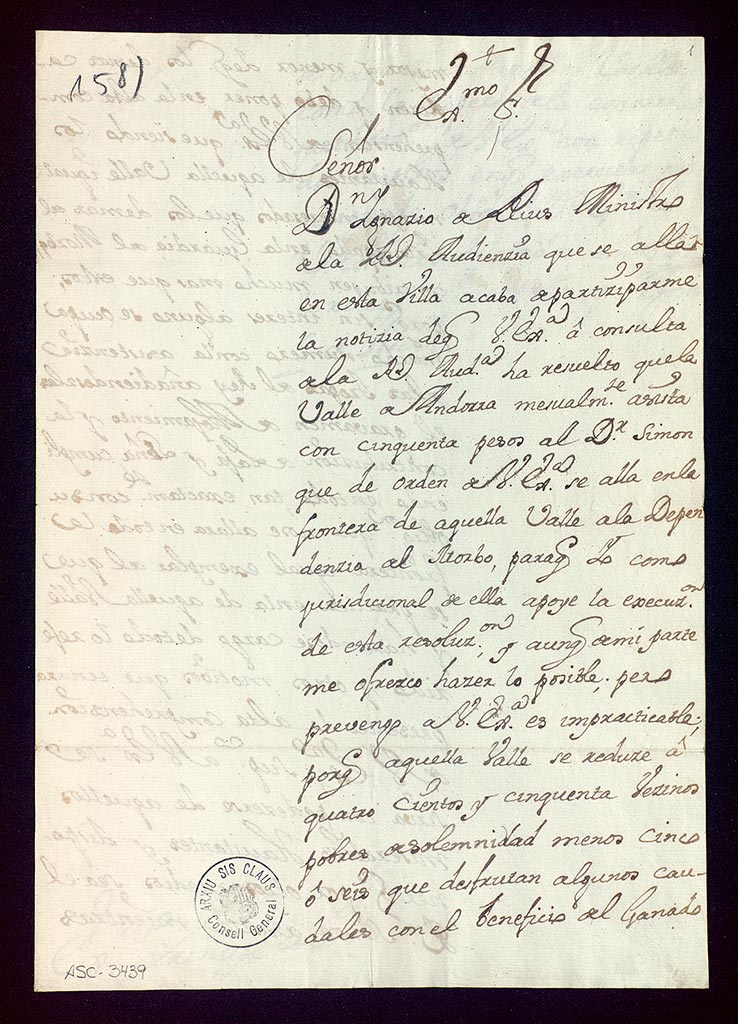 158)
1
Ex.mo S.r
Señor
D.n Ygnazio de Rius Ministro
de la R.l Audienzia que se alla
en esta Villa acaba de partiziparme
la notizia de q V. Ex.a â consulta
de la R.l Aud.a ha resuelto que la
Valle de Andorra mesualm.te asista
con cinquenta pesos al D.r Simon
que de orden de V. Ex.a se alla en la
frontera de aquella Valle a la Depen
denzia del Morbo, para q Yo como
jurisdicional de ella apoye la execuz.on
de esta resoluz.on, y aunq de mi parte
me ofrezco hazer lo posible; pero
prevengo a V. Ex.a es impracticable;
porq aquella Valle se reduze â
quatro cientos y cinquenta Vezinos
pobres de solemnidad menos cinco
ô seis que desfrutan algunos cau-
dales con el beneficio del Ganado
ARXIU SIS CLAUS
Consell General
ASC-3439